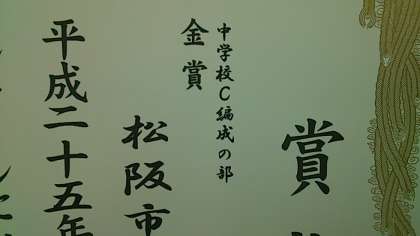 賞
中学校C編成の部
金賞
松阪市
平成二十五年